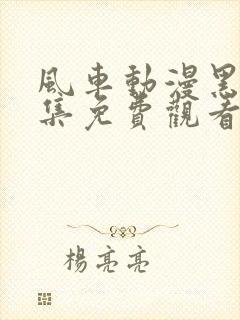 風車動漫黑
集免費觀看
楊亮亮